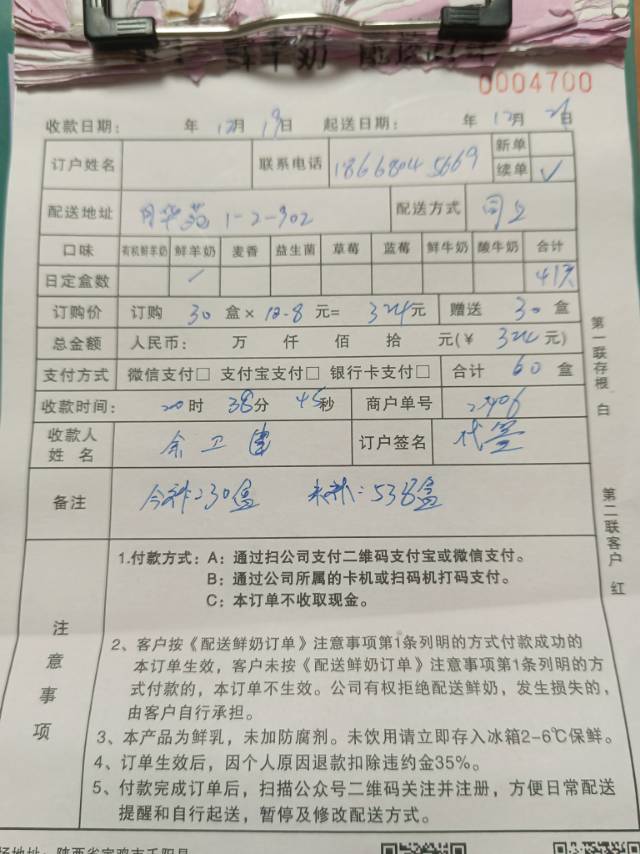 0004700
收款日期： 年 12月 19日 起送日期： 年 12月 日
订户姓名 联系电话 18668045669 新单
续单 ✓
配送地址 1-2-902 配送方式 同上
口味 有机鲜羊奶 鲜羊奶 麦香 益生菌 草莓 蓝莓 鲜牛奶 酸牛奶 合计
日定盒数
订购价 订购 30 盒× 元= 324元 赠送 30 盒
总金额 人民币： 万 仟 佰 拾 元(￥ 324 元)
支付方式 微信支付□ 支付宝支付□ 银行卡支付□ 合计 60 盒
收款时间： 20时 38分 45秒 商户单号
收款人姓名 余卫 订户签名 代签
备注 今补:30盒 未补:538盒
第一联存根 白
第二联客户 红
注意事项
1.付款方式：A：通过扫公司支付二维码支付宝或微信支付。
B：通过公司所属的卡机或扫码机打码支付。
C：本订单不收取现金。
2、客户按《配送鲜奶订单》注意事项第1条列明的方式付款成功的
本订单生效，客户未按《配送鲜奶订单》注意事项第1条列明的方
式付款的，本订单不生效。公司有权拒绝配送鲜奶，发生损失的，
由客户自行承担。
3、本产品为鲜乳，未加防腐剂。未饮用请立即存入冰箱2-6℃保鲜。
4、订单生效后，因个人原因退款扣除违约金35%。
5、付款完成订单后，扫描公众号二维码关注并注册，方便日常配送
提醒和自行起送，暂停及修改配送方式。